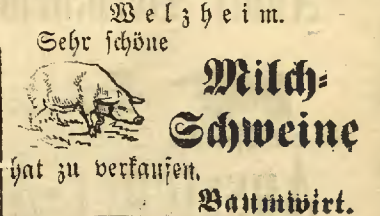 Welzheim.
Sehr schöne
Milch-
Schweine
hat zu verkaufen.
Baumwirt.